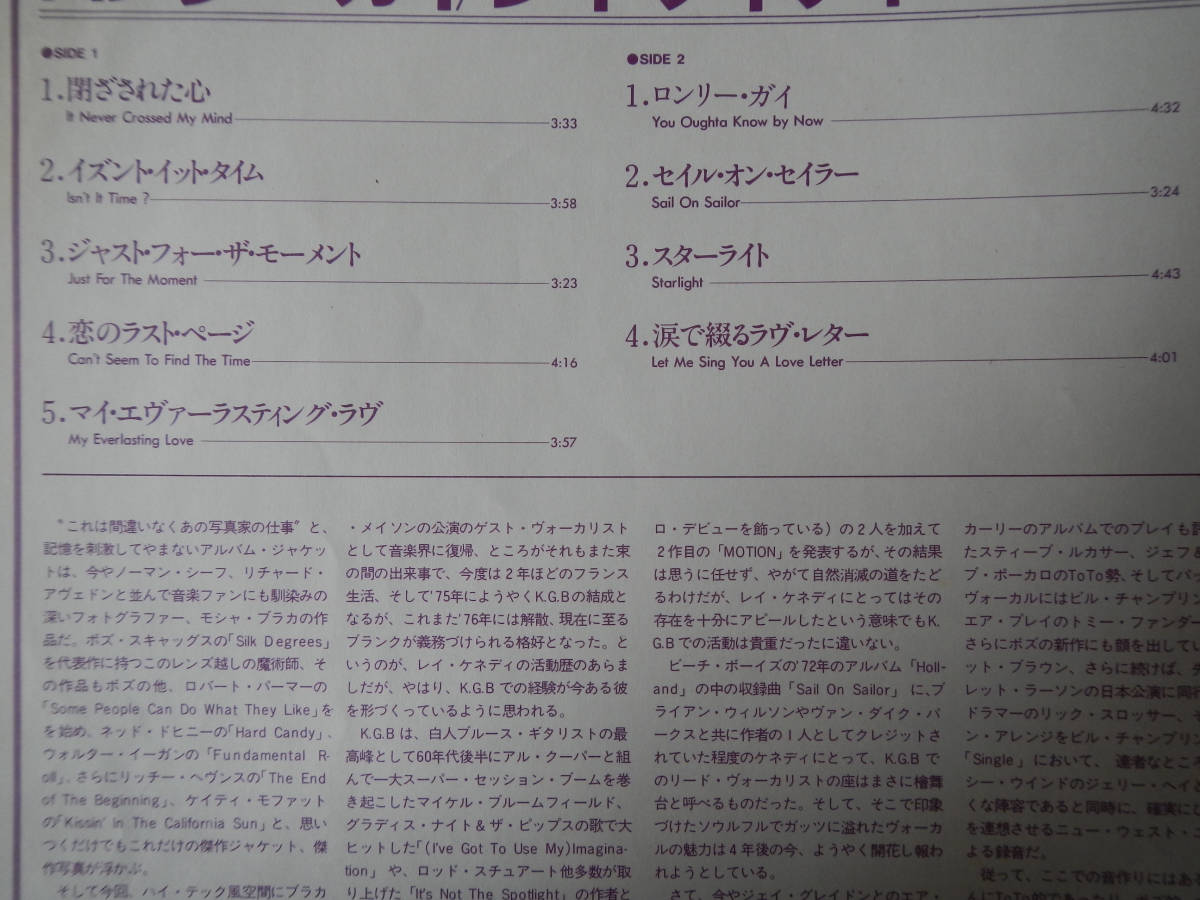 ●SIDE 1
1.閉ざされた心
It Never Crossed My Mind 3:33
2.イズント・イット・タイム
Isn't It Time ? 3:58
3.ジャスト・フォー・ザ・モーメント
Just For The Moment 3:23
4.恋のラスト・ページ
Can't Seem To Find The Time 4:16
5.マイ・エヴァーラスティング・ラヴ
My Everlasting Love 3:57
●SIDE 2
1.ロンリー・ガイ
You Oughta Know by Now 4:32
2.セイル・オン・セイラー
Sail On Sailor 3:24
3.スターライト
Starlight 4:43
4.涙で綴るラヴ・レター
Let Me Sing You A Love Letter 4:01
"これは間違いなくあの写真家の仕事"と、
記憶を刺激してやまないアルバム・ジャケッ
トは、今やノーマン・シーフ、リチャード・
アヴェドンと並んで音楽ファンにも馴染みの
深いフォトグラファー、モシャ・ブラカの作
品だ。ボズ・スキャッグスの「Silk Degrees」
を代表作に持つこのレンズ越しの魔術師、そ
の作品もボズの他、ロバート・パーマーの
「Some People Can Do What They Like」を
を始め、ネッド・ドヒニーの「Hard Candy」、
ウォルター・イーガンの「Fundamental R-
oll」、さらにリッチー・ヘヴンスの「The End
of The Beginning」、ケイティ・モファット
の「Kissin' In The California Sun」と、思い
つくだけでもこれだけの傑作ジャケット、傑
作写真が浮かぶ。
そして今回、ハイ・テック風空間にブラカ
・メイソンの公演のゲスト・ヴォーカリスト
として音楽界に復帰、ところがそれもまた束
の間の出来事で、今度は2年ほどのフランス
生活、そして'75年にようやくK.G.Bの結成と
なるが、これまた'76年には解散、現在に至る
ブランクが義務づけられる格好となった。と
いうのが、レイ・ケネディの活動歴のあらま
しだが、やはり、K.G.Bでの経験が今ある彼
を形づくっているように思われる。
K.G.Bは、白人ブルース・ギタリストの最
高峰として60年代後半にアル・クーパーと組
んで一大スーパー・セッション・ブームを巻
き起こしたマイケル・ブルームフィールド、
グラディス・ナイト&ザ・ピップスの歌で大
ヒットした「(I've Got To Use My)Imagina-
tion」や、ロッド・スチュアート他多数が取
り上げた「It's Not The Spotlight」の作者と
ロ・デビューを飾っている）の2人を加えて
2作目の「MOTION」を発表するが、その結果
は思うに任せず、やがて自然消滅の道をたど
るわけだが、レイ・ケネディにとってはその
存在を十分にアピールしたという意味でもK.
G.Bでの活動は貴重だったに違いない。
ビーチ・ボーイズの'72年のアルバム「Holl-
and」の中の収録曲「Sail On Sailor」に、ブ
ライアン・ウィルソンやヴァン・ダイク・パ
ークスと共に作者の1人としてクレジットさ
れていた程度のケネディにとって、K.G.Bで
のリード・ヴォーカリストの座はまさに檜舞
台と呼べるものだった。そして、そこで印象
づけたソウルフルでガッツに溢れたヴォーカ
ルの魅力は4年後の今、ようやく開花し報わ
れようとしている。
さて、今やジェイ・グレイドンとのエア・
カーリーのアルバムでのプレイも
たスティーブ・ルカサー、ジェフ&
ブ・ポーカロのToTo勢、そしてバッ
ヴォーカルにはビル・チャンプリン
エア・プレイのトミー・ファンダー
さらにボズの新作にも顔を出してい
ット・ブラウン、さらに続けば、
レット・ラーソンの日本公演に同
ドラマーのリック・スロッサー、
ン・アレンジをビル・チャンプリン
「Single」において、達者なところ
シー・ウインドのジェリー・ヘイ
くな陣容であると同時に、確実に
を連想させるニュー・ウェスト・
よる録音だ。
従って、ここでの音作りにはある